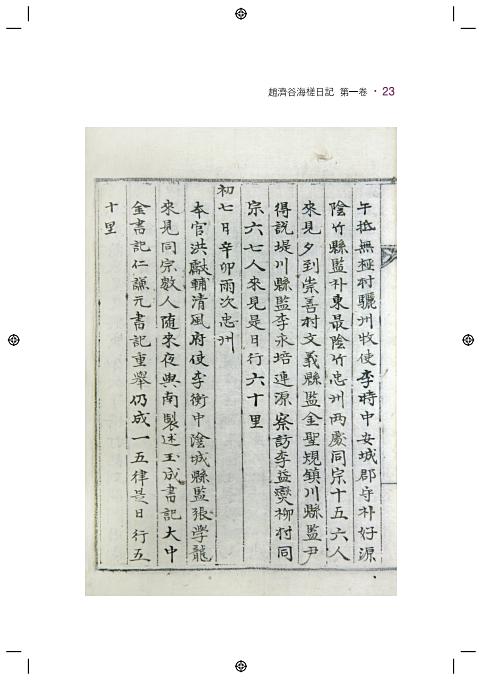 趙濟谷海槎日記 第一卷 · 23
午抵無極村驪州牧使李時中安城郡守朴好源
陰竹縣監朴東最陰竹忠州兩處同宗十五六人
來見夕到崇善村文義縣監金聖規鎭川縣監尹
得說堤川縣監李永培連源察訪李益燮柳村同
宗六七人來見是日行六十里
初七日辛卯雨次忠州
本官洪獻輔清風府使李衡中陰城縣監張學龍
來見同宗數人随來夜與南製述玉成書記大中
金書記仁謙元書記重擧仍成一五律是日行五
十里